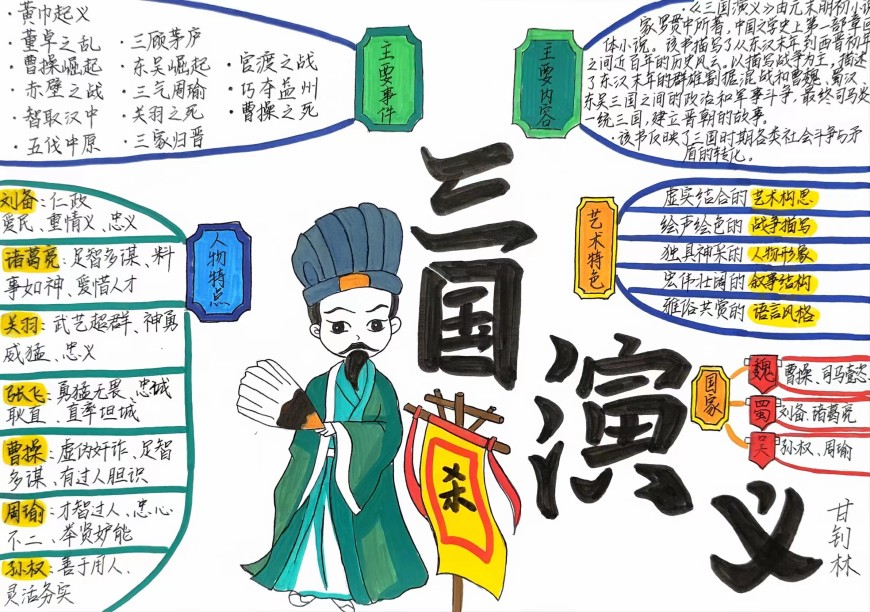 ·黄巾起义
·董卓之乱
·曹操崛起
·赤壁之战
·智取汉中
·五伐中原
·三顾茅庐
·东吴崛起
·三气周瑜
·关羽之死
·三家归晋
·官渡之战
·巧夺益州
·曹操之死
主要事件
主要内容
·《三国演义》由元末明初小说
家罗贯中所著,中国文学史上第一部章回
体小说。该书描写了从东汉末年到西晋初年
之间近百年的历史风云。以描写战争为主,描述
了东汉末年的群雄割据混战和曹魏、蜀汉、
东吴三国之间的政治和军事斗争,最终司马炎
一统三国,建立晋朝的故事。
·该书反映了三国时期各类社会斗争与矛
盾的转化。
人物特点
刘备:仁政
爱民、重情义、忠义
诸葛亮:足智多谋、料
事如神、爱惜人才
关羽:武艺超群、神勇
威猛、忠义
张飞:勇猛无畏、忠城
耿直、直率坦城
曹操:虚伪奸诈、足智
多谋、有过人胆识
周瑜:才智过人、忠心
不二、举贤妒能
孙权:善于用人、
灵活务实
三国演义
杀
艺术特色
虚实结合的艺术构思
绘声绘色的战争描写
独具神采的人物形象
宏伟壮阔的叙事结构
雅俗共赏的语言风格
国家
魏 曹操、司马懿
蜀 刘备、诸葛亮
吴 孙权、周瑜
甘钊林